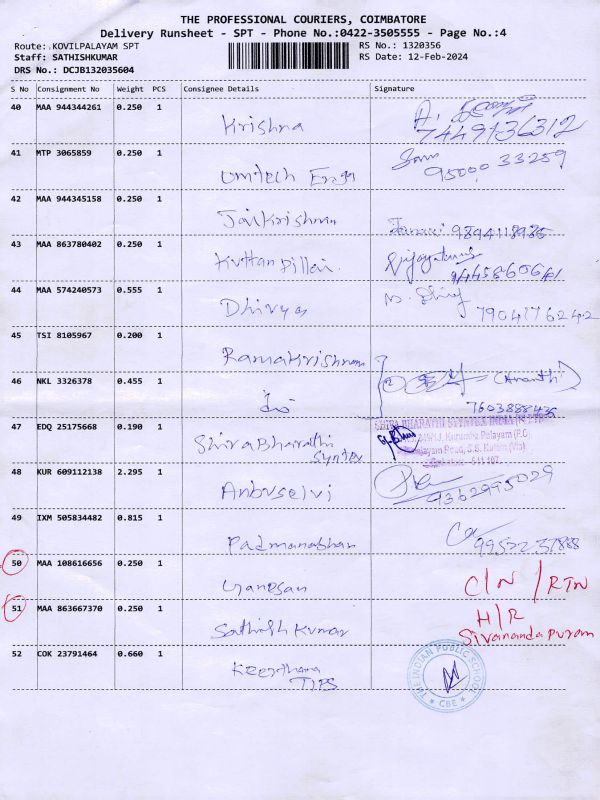 THE PROFESSIONAL COURIERS, COIMBATORE
Delivery Runsheet - SPT - Phone No.:0422-3505555 - Page No.:4
Route: KOVILPALAYAM SPT RS No.: 1320356
Staff: SATHISHKUMAR RS Date: 12-Feb-2024
DRS No.: DCJB132035604
S No Consignment No Weight PCS Consignee Details Signature
40 MAA 944344261 0.250 1
Krishna 7449136312
41 MTP 3065859 0.250 1
Unitech Engg 95000 33259
42 MAA 944345158 0.250 1
Jaikrishnan 9894118985
43 MAA 863780402 0.250 1
Kuttan Pillai. Vijayakumar
44 MAA 574240573 0.555 1
Dhivya 7904776242
45 TSI 8105967 0.200 1
Ramakrishnan
46 NKL 3326378 0.455 1 (Ananthi)
7603888435
47 EDQ 25175668 0.190 1 SHIVA BHARATHI SYNTEX INDIA (P) LTD
Shiva Bharathi
Syntex
48 KUR 609112138 2.295 1
Anbuselvi 9362995029
49 IXM 505834482 0.815 1
Padmanabhan 99522 37888
50 MAA 108616656 0.250 1 C/N / RTN
Ganesan
51 MAA 863667370 0.250 1 H/R
Sathish Kumar Sivanandapuram
52 COK 23791464 0.660 1 THE INDIAN PUBLIC SCHOOL
Keerthana CBE
TIPS